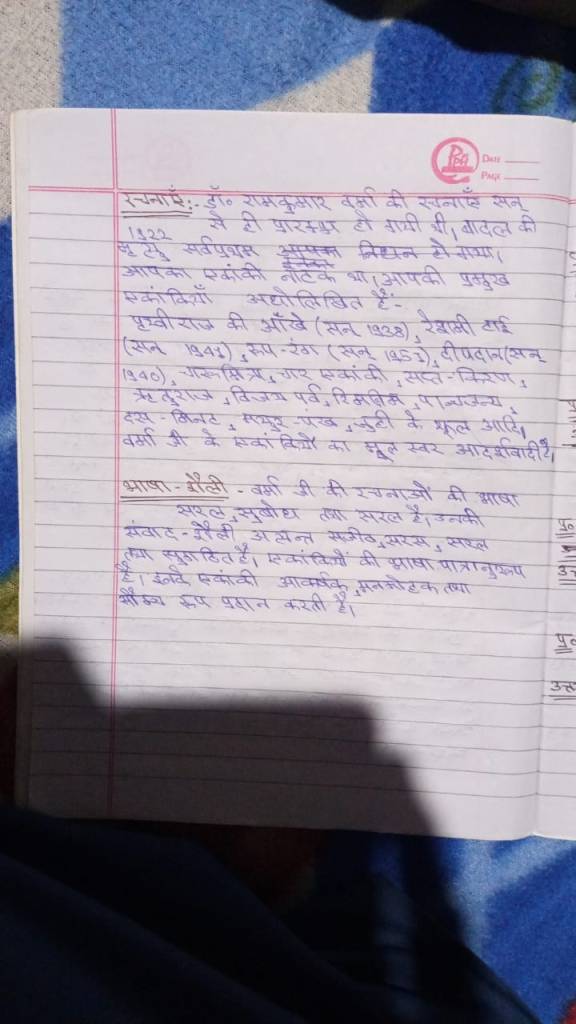 DATE
PAGE
रचनाएँ:- डॉ० रामकुमार वर्मा की रचनाएँ सन्
1922 से ही प्रारम्भ हो गयी थी। बादल की
मृत्यु सर्वप्रथम
आपका एकांकी नाटक था। आपकी प्रमुख
एकांकियाँ अधोलिखित हैं:-
पृथ्वीराज की आँखे (सन् 1938), रेशमी टाई
(सन् 1941), रूप-रंग (सन्, दीपदान (सन्
1940), चारूमित्रा, चार एकांकी, सप्त-किरण,
ऋतुराज, विजय पर्व, रिमझिम, पान्चजन्य,
दस-मिनट, मयूर-पंख, जुही के फूल आदि।
वर्मा जी के एकांकियों का मूल स्वर आदर्शवादी है।
भाषा-शैली - वर्मा जी की रचनाओं की भाषा
सरल, सुबोध तथा सरल है। उनकी
संवाद-शैली अत्यन्त सजीव, सरस, सरल
तथा सुगठित है। एकांकियों की भाषा पात्रानुरूप
है। इनके एकांकी आकर्षक, मनमोहक तथा
रूप प्रदान करती है।